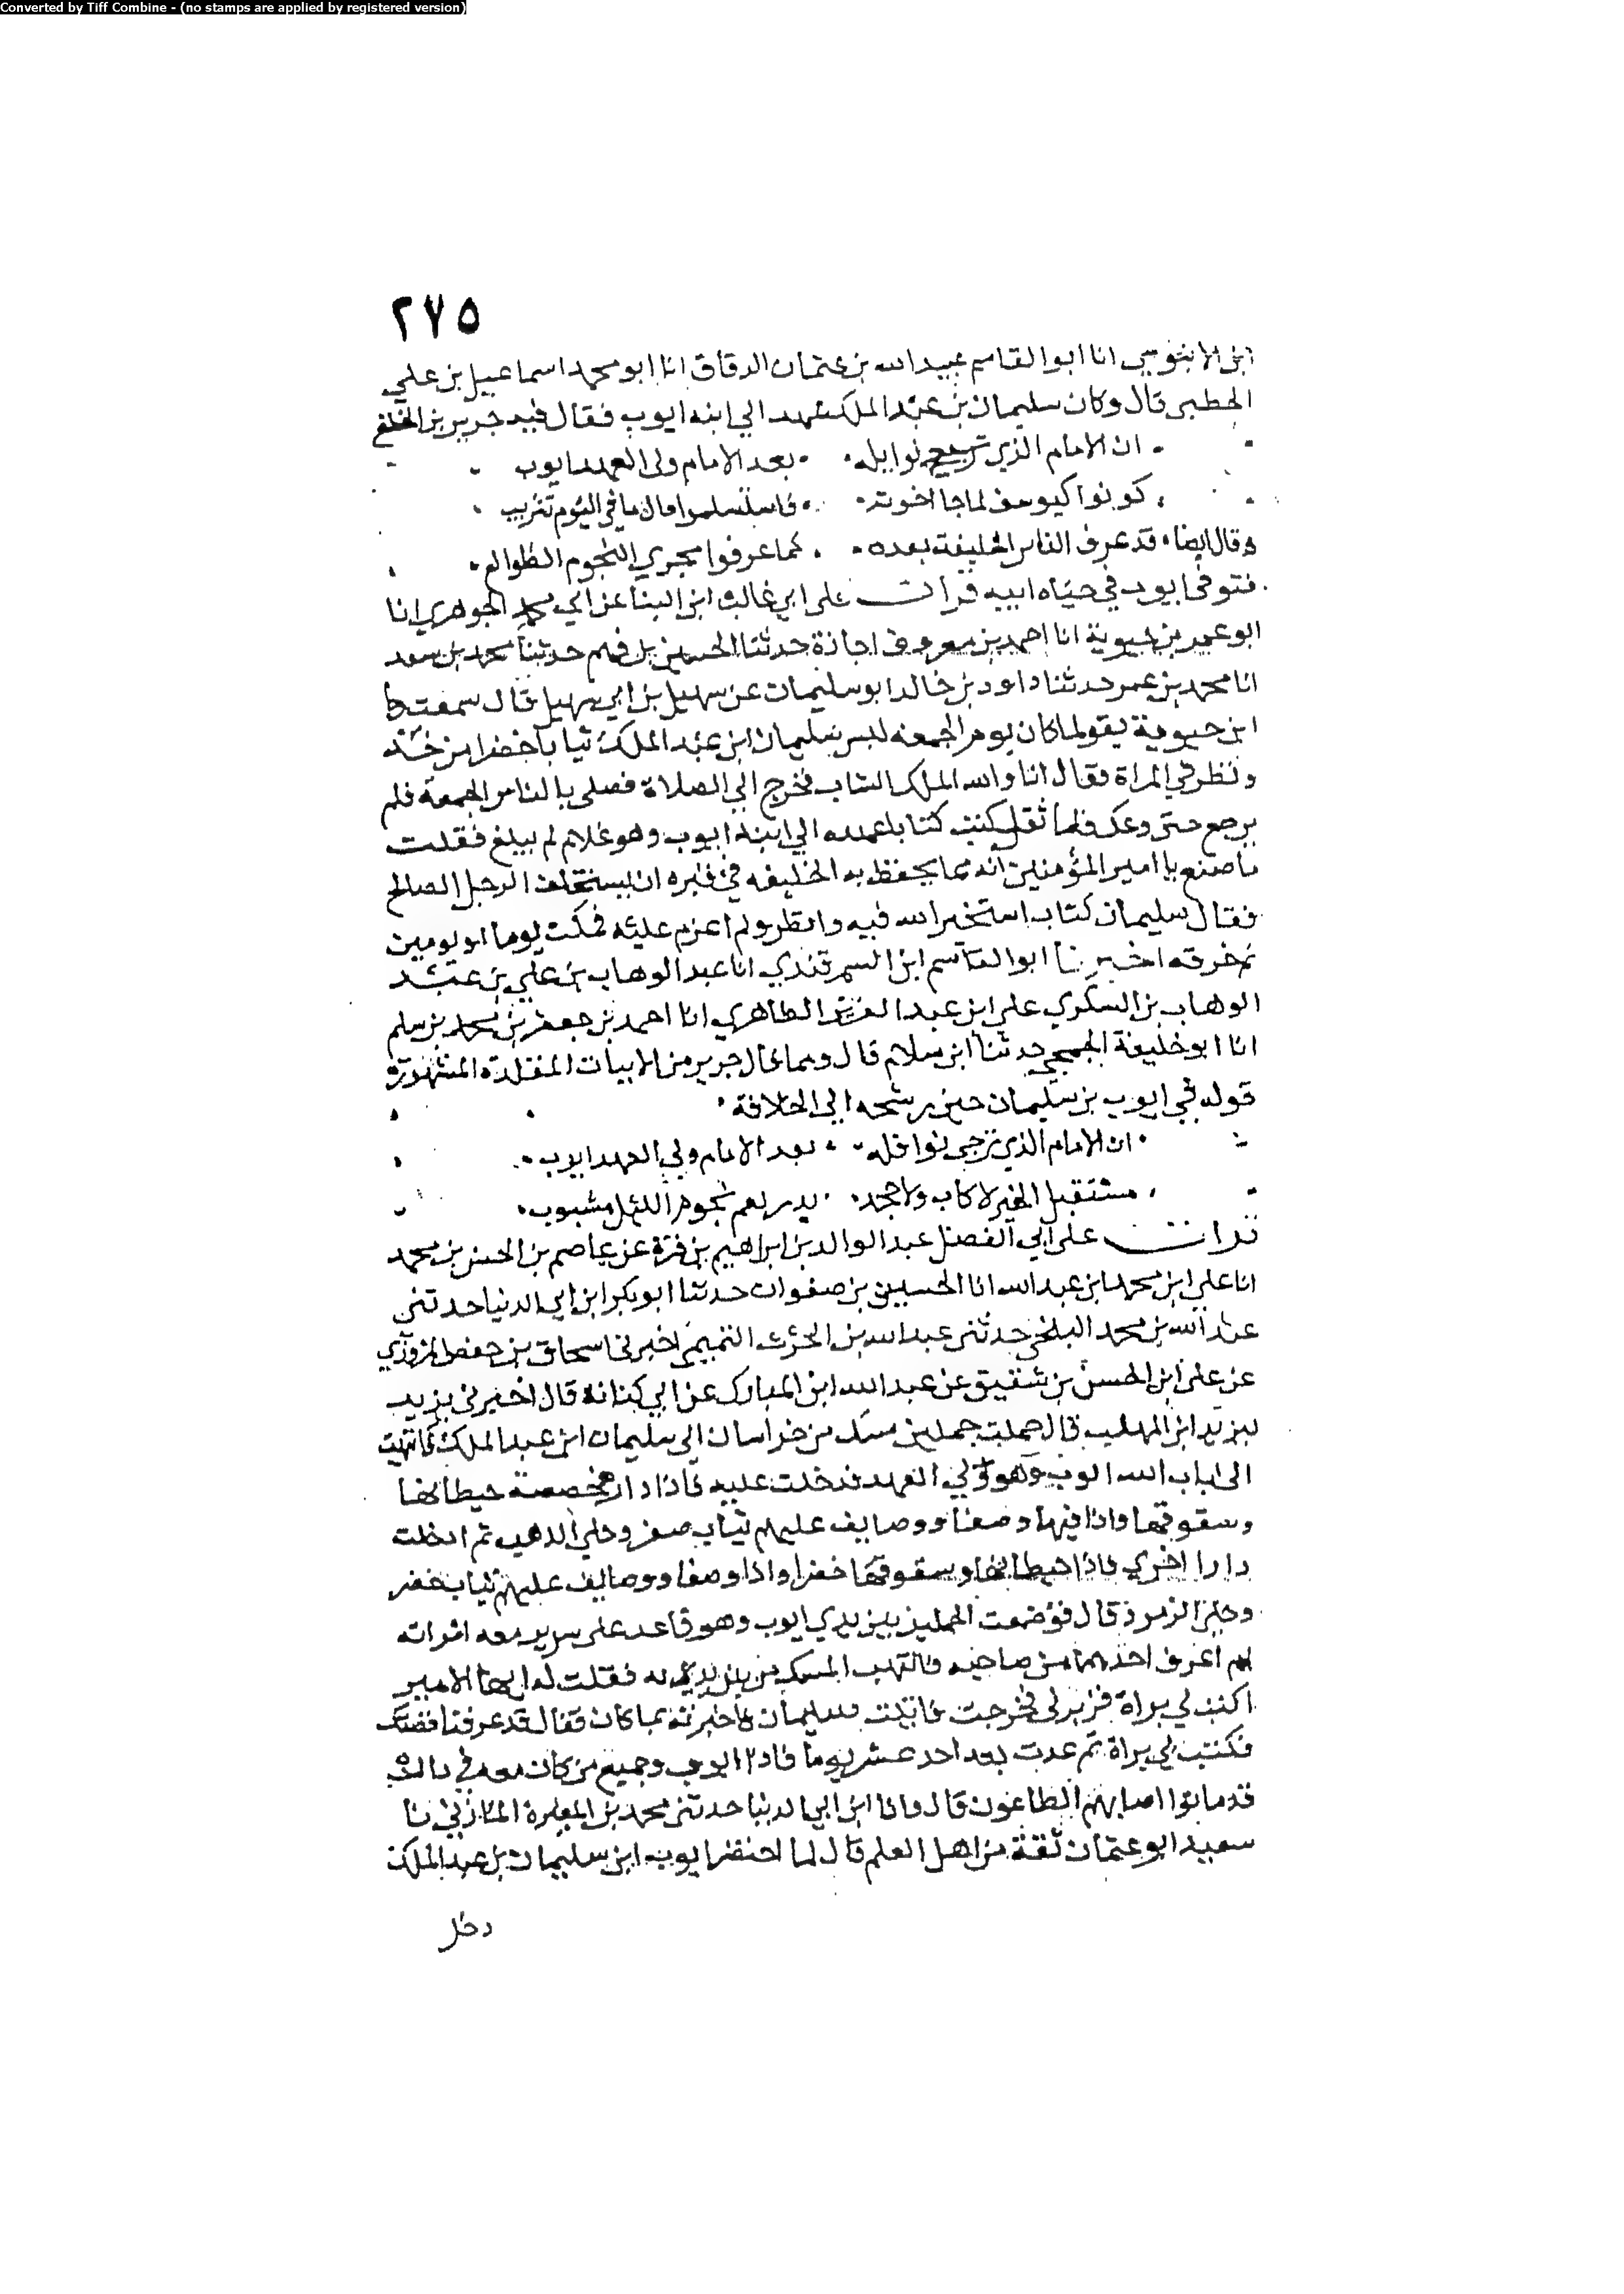 Converted by Tiff Combine - (no stamps are applied by registered version)
٢٧٥
ابن الابنوسي انا ابو القاسم عبيد الله بن عثمان الدقاق انا ابو محمد اسماعيل بن علي
الخطبي قال وكان سليمان بن عبد الملك عهد الي ابنه ايوب فقال فيه جرير بن الخطفي
ان الامام الذي ترجى نوافله بعد الامام ولي العهد ايوب
كونوا كيوسف لما جا اخوته فاستسلموا قال ما في اليوم تثريب
وقال ايضا قد عرف الناس الخليفة بعده كما عرفوا مجري النجوم الطوالع
فتوفي ايوب في حياه ابيه قرات علي ابي غالب ابن البنا عن ابي محمد الجوهري انا
ابو عمر بن حيوية انا احمد بن معروف اجازة حدثنا الحسين بن فهم حدثنا محمد بن سعد
انا محمد بن عمر حدثنا داود بن خالد ابو سليمان عن سهيل بن ابي سهيل قال سمعت رجا
ابن حيوية يقول لما كان يوم الجمعه لبس سليمان ابن عبد الملك ثيابا خضرا من خز
ونظر في المراة فقال انا والله الملك الشاب فخرج الي الصلاة فصلي بالناس الجمعة فلم
يرجع حتى وعك فلما ثقل كتب كتابا عهده الي ابنه ايوب وهو غلام لم يبلغ فقلت
ما تصنع يا امير المؤمنين انه مما يحفظ به الخليفه في قبره ان يستخلف الرجل الصالح
فقال سليمان كتاب استخير الله فيه وانظر ولم اعزم عليه فمكث يوما او يومين
ثم خرقه اخبرنا ابو القاسم ابن السمرقندي انا عبد الوهاب بن علي بن عبد
الوهاب بن السكري علي ابن عبد العزيز الطاهري انا احمد بن جعفر بن محمد بن سلم
انا ابو خليفة الجمحي حدثنا ابن سلام قال ومما قال جرير من الابيات المقلدة المشهورة
قوله في ايوب بن سليمان حين رشحه الي الخلافة
ان الامام الذي ترجى نوافله بعد الامام ولي العهد ايوب
مستقبل الخير لا كاب ولا جحد بدر يعم نجوم الليل مشبوب
قرات علي ابي الفضل عبد الواحد بن ابراهيم بن قرة عن عاصم بن الحسن بن محمد
انا علي ابن محمد ابن عبد الله انا الحسين بن صفوان حدثنا ابو بكر ابن ابي الدنيا حدثني
عبد الله بن محمد البلخي حدثني عبد الله بن الحرث التميمي اخبرني اسحاق بن حفص المروزي
عن علي ابن الحسن بن شقيق عن عبد الله ابن المبارك عن ابي كنانة قال اخبرني يزيد
ليزيد ابن المهلب قال حملت حملين مسك من خراسان الي سليمان ابن عبد الملك فانتهيت
الي باب ابنه ايوب وهو ولي العهد فدخلت عليه فاذا دار مجصصة حيطانها
وسقوفها واذا فيها وصفا ووصايف عليهم ثياب صفر وحلي الذهب ثم ادخلت
دارا اخري فاذا حيطانها وسقوفها خضرا واذا وصفا ووصايف عليهم ثياب خضر
وحلي الزمرد قال فوضعت الحملين بين يدي ايوب وهو قاعد على سرير معه امراته
لم اعرف احدهما من صاحبه فانتهب المسك من بين يديه فقلت له ايها الامير
اكتب لي براة فزبرني فخرجت فاتيت سليمان فاخبرته بما كان فقال قد عرفنا قصتك
فكتب لي براة ثم عدت بعد احد عشر يوما فاذا ايوب وجميع من كان معه في داره
قد ماتوا اصابهم الطاعون قال وانا ابن ابي الدنيا حدثني محمد بن المغيرة المازني نا
سعيد ابو عثمان ثقة من اهل العلم قال لما احتضر ايوب ابن سليمان بن عبد الملك
دخل